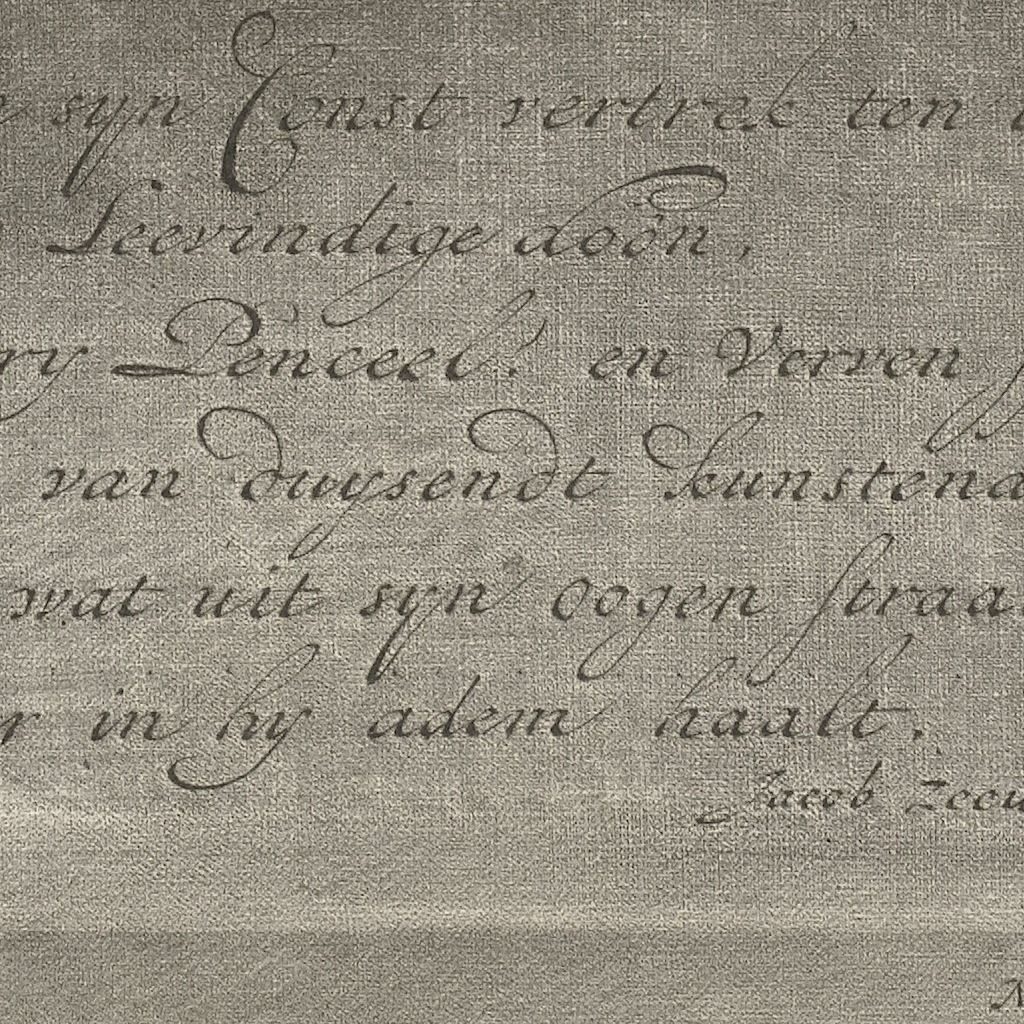 syn Const vertrek ten
Leevindige doôn,
Penceel! en Verven
van duysendt kunstena
wat uit syn oogen straa
in hy adem haalt.
Jacob Zeeu